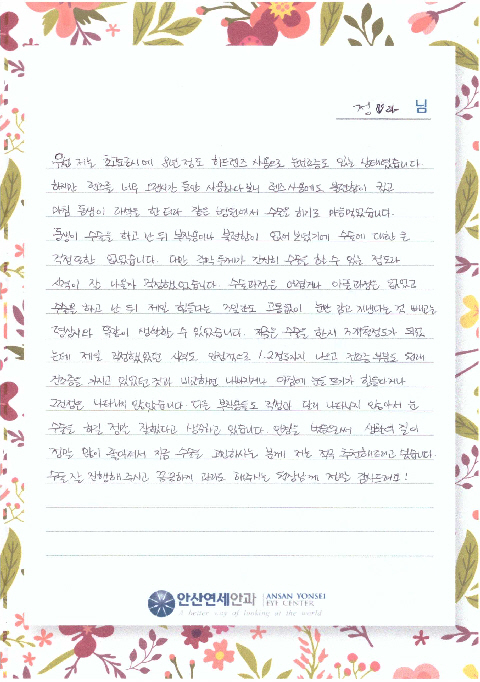 정♥라 님
우선 저는 초고도근시에 8년 정도 하드렌즈 사용으로 눈번짐도 있는 상태였습니다.
하지만 렌즈를 너무 오랜시간 동안 사용하다보니 렌즈사용에도 불편함이 컸고
마침 동생이 라섹을 한다고 같은 병원에서 수술을 하기로 마음먹었습니다.
동생이 수술을 하고 난 뒤 부작용이나 불편함이 없어 보였기에 수술에 대한 큰
걱정 또한 없었습니다. 다만 각막두께가 간신히 수술을 할 수 있는 정도라
시력이 잘 나올지 걱정했었습니다. 수술과정은 어렵거나 아플 걱정은 없었고
수술을 하고 난 뒤 제일 힘들다는 3일간도 고통없이 눈만 감고 지낸다는 것 빼고는
일상과 똑같이 생활할 수 있었습니다. 지금은 수술을 한지 3개월정도가 되었
는데 제일 걱정했었던 시력도 안정적으로 1.2정도까지 나오고 건조증 부분도 원래
건조증을 가지고 있었던 것과 비교하면 나빠지거나 아침에 눈을 뜨기가 힘들다거나
그런점은 나타나지 않았습니다. 다른 부작용들도 걱정과 달리 나타나지 않아서 눈
수술을 하길 정말 잘했다고 생각하고 있습니다. 안경을 벗음으로써 생활의 질이
정말 많이 좋아져서 지금 수술을 고민하시는 분께 저는 적극 추천해드리고 싶습니다.
수술 잘 진행해주시고 꼼꼼하게 관리도 해주시는 원장님께 정말 감사드려요!
안산연세안과 ANSAN YONSEI
EYE CENTER
A better way of looking at the world